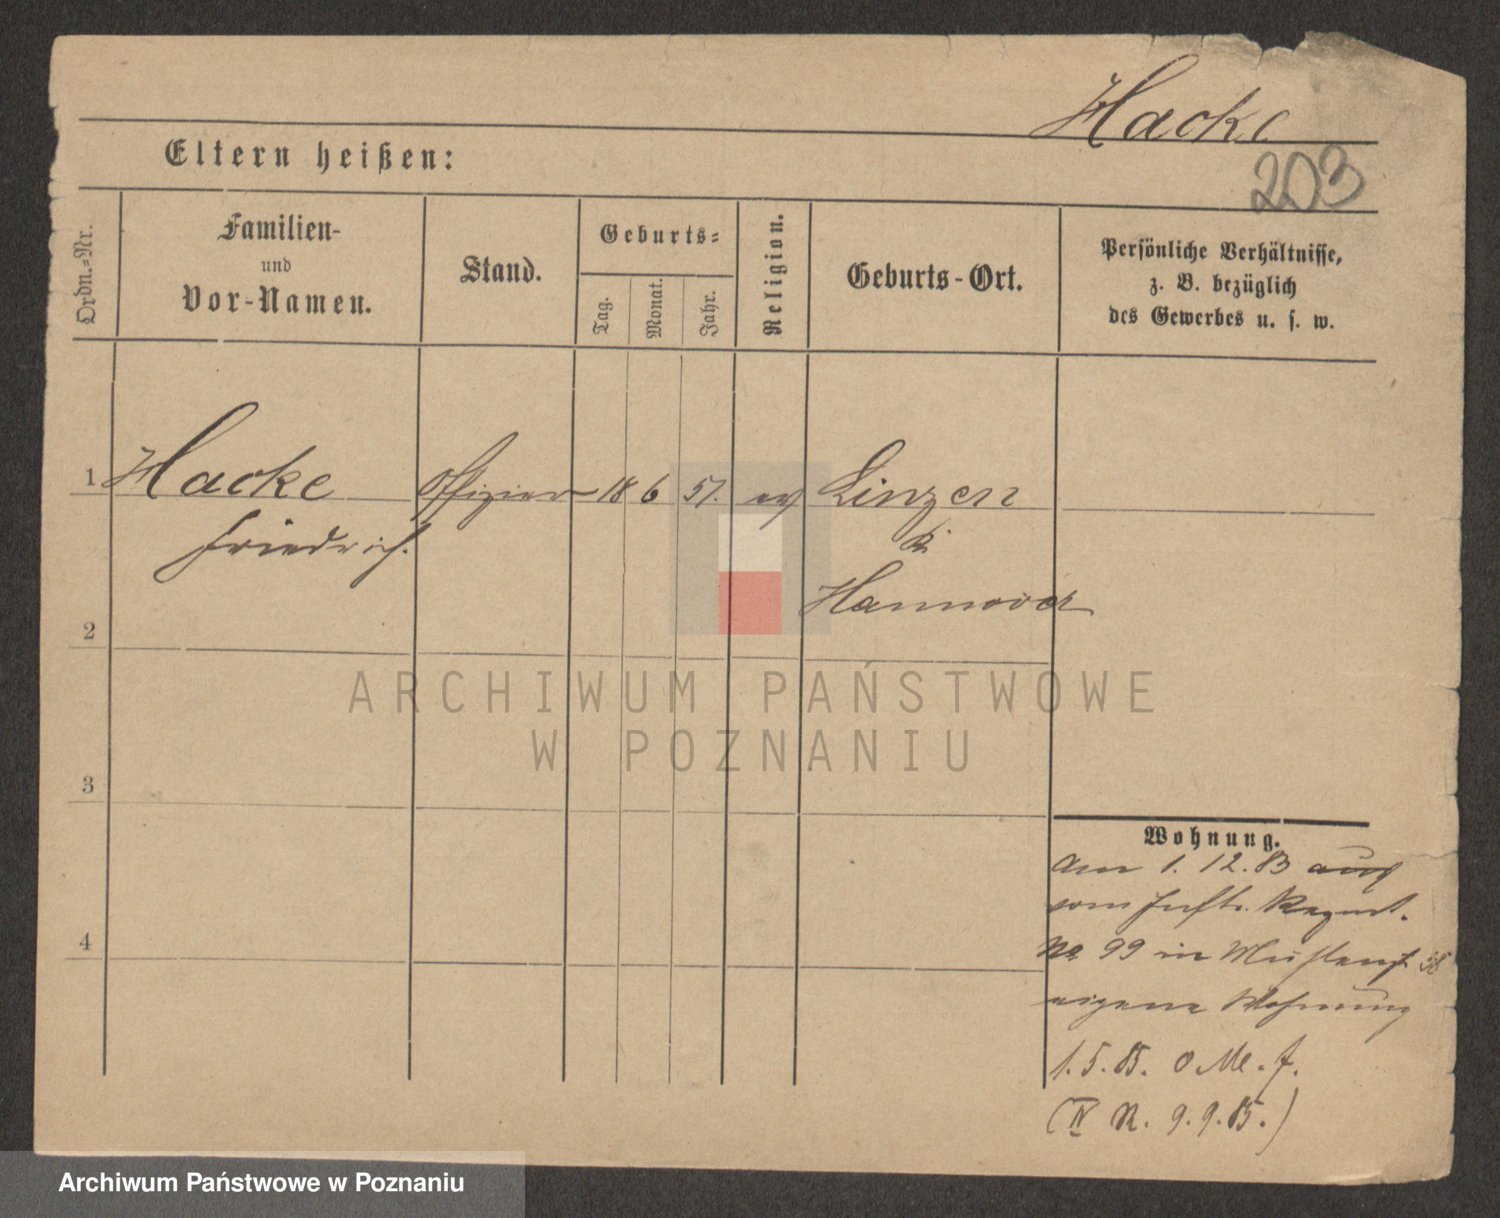 Hacke
Eltern heißen:
203
Ordn.-Nr.
Familien-
und
Vor-Namen.
Stand.
Geburts-
Tag.
Monat.
Jahr.
Religion.
Geburts-Ort.
Persönliche Verhältnisse,
z. B. bezüglich
des Gewerbes u. s. w.
1
Hacke Offizier 18 6 51. ev Linzen
Friedrich.
Hannover
2
ARCHIWUM PAŃSTWOWE
W POZNANIU
3
Wohnung.
am 1. 12. 83 aus
vom Inftr. Regmt.
No 99 in
4
eigene Wohnung
1. 5. 85. O M. f.
(IV R. 9. 9. 85.)
Archiwum Państwowe w Poznaniu